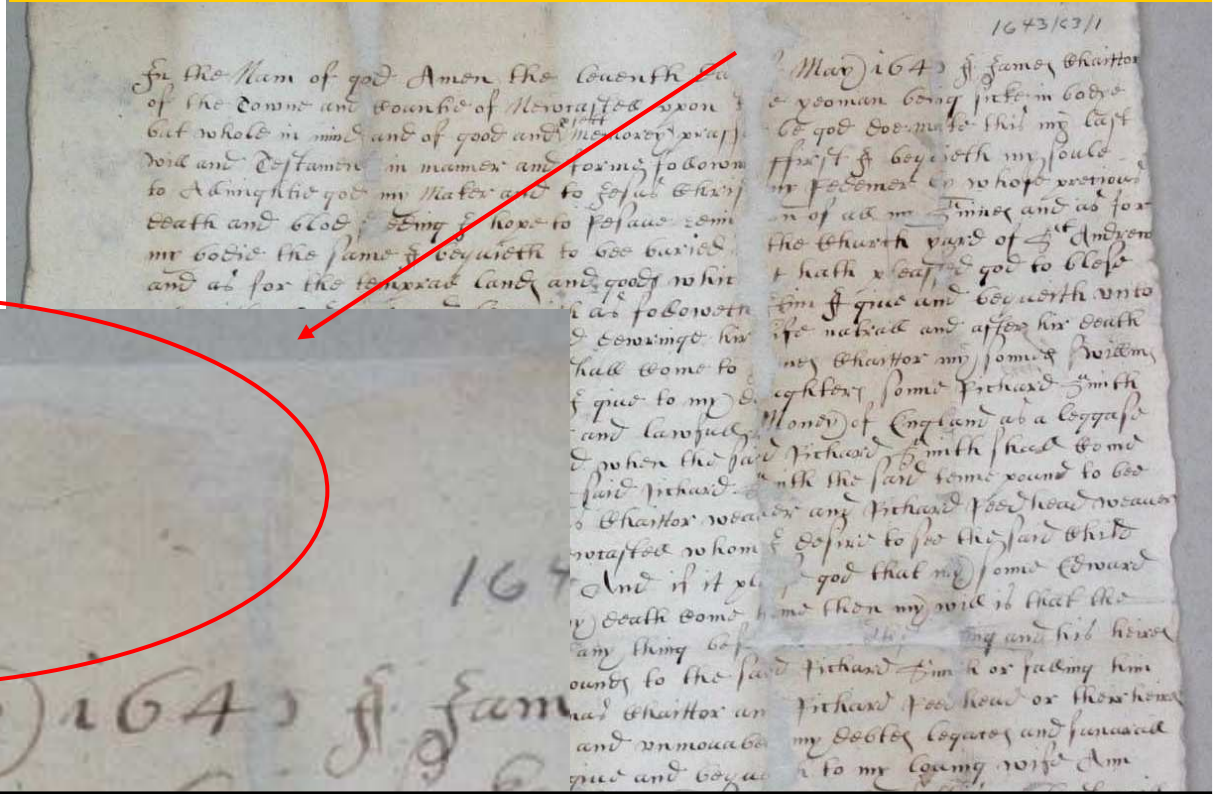 1643/C3/1
In the Nam of god Amen the leventh Da May 1643 J James Chaittor
of the Towne and Countie of Newcastell vpon e yeoman being sicke in bodye
but whole in mind and of good and pfect Memorey prass be god doe make this my last
Will and Testament in manner and forme followin ffirst J bequieth my soule
to Allmightie god my Maker and to Jesus Chris my Redemer by whose pretious
death and blod sheding J hope to Resaue remi on of all my Sinnes and as for
my bodie the same J bequieth to bee buried the Church yard of St Andrew
and as for the temprall lands and goods whic t hath pleassed god to blese
as followeth J giue and bequeith vnto
dewringe hir life natrall and after hir death
shall Come to Chaittor my sonnes
J giue to my Daughters sonne Richard Smith
and lawfull Money of England as a leggase
when the said Richard Smith shall Come
said Richard Smith the said tenne pound to bee
Chaittor weauer and Richard Reedhead weauer
Newcastell whom J desire to see the said Child
And if it pl god that my sonne Edward
my death Come home then my will is that the
any thing bef and his heires
pounds to the said Richard Smith or faling him
Chaittor an Richard Reedhead or their heires
and vnmouabell my debtes legases and funarall
giue and bequie h to my Louing wife Ann
164
1643 J Jam